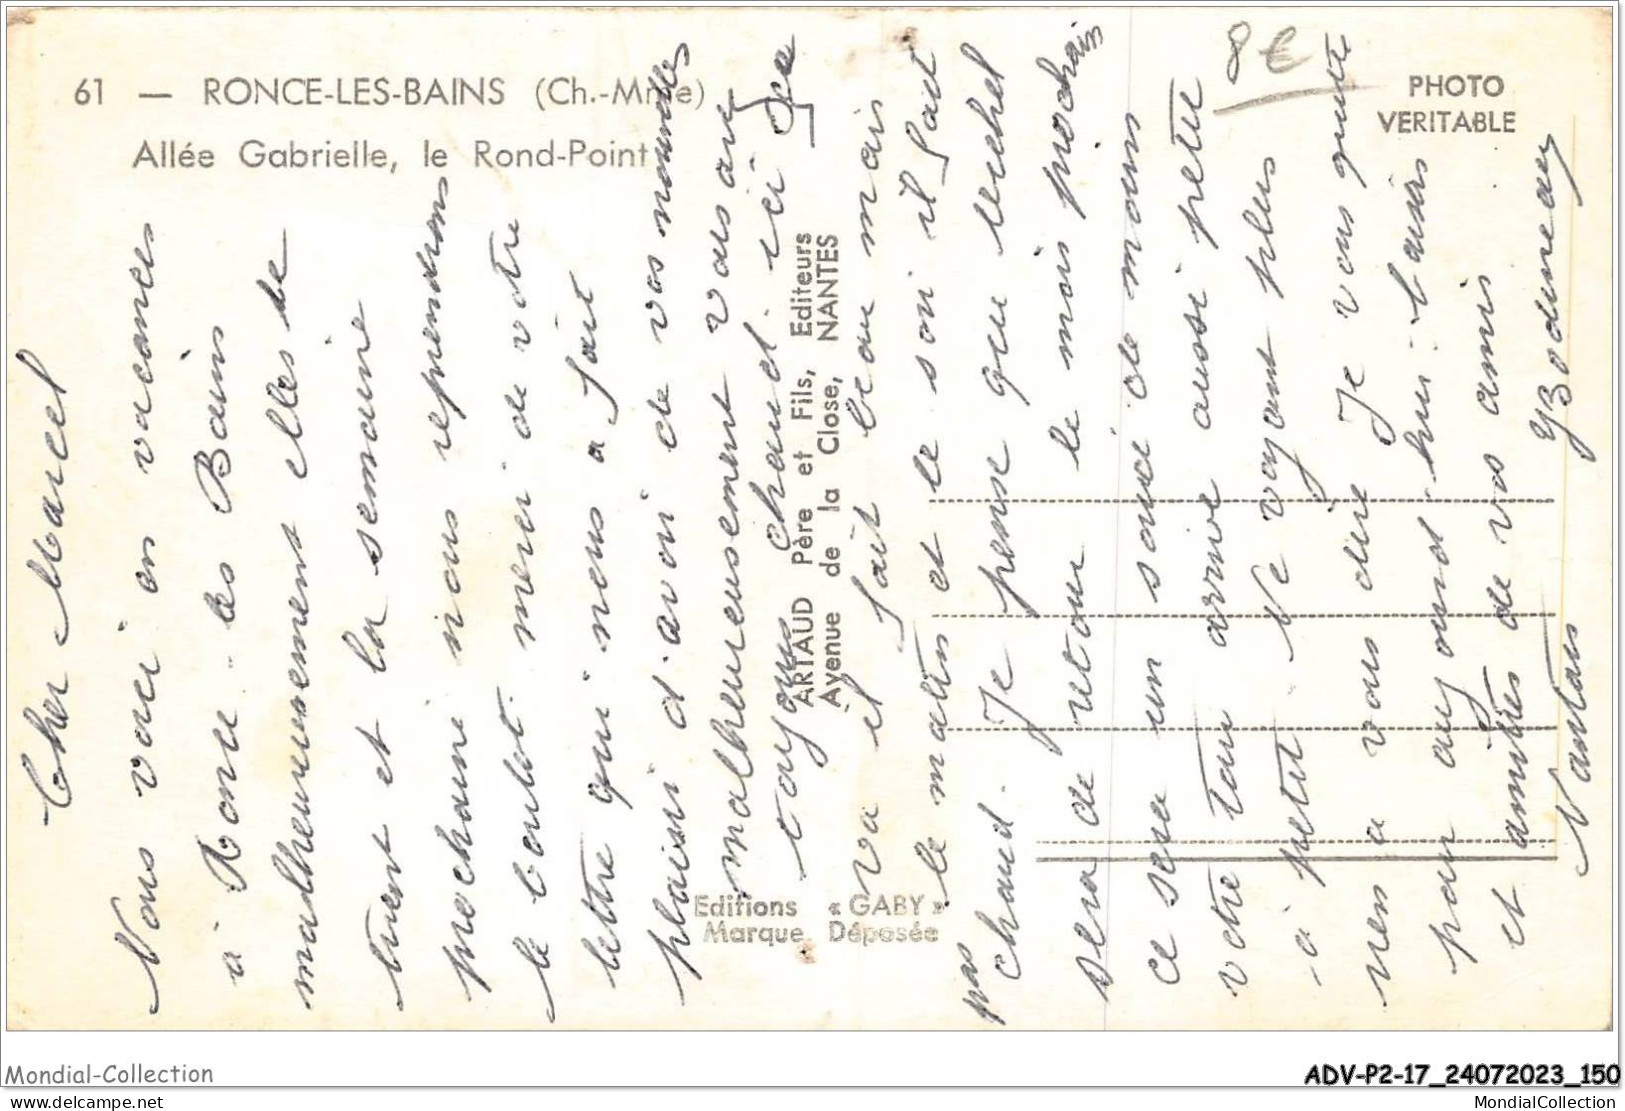 61 — RONCE-LES-BAINS (Ch.-Mme)
Allée Gabrielle, le Rond-Point
PHOTO
VERITABLE
8 €
Cher Marcel
Nous voici en vacances
à Ronce-les Bains
malheureusement elles se
tirent et la semaine
prochaine nous reprendrons
le boulot. merci de votre
lettre qui nous a fait
plaisir d'avoir de vos nouvelles
malheureusement vous avez
toujours chaud. ici ça
va il fait beau mais
le matin et le soir il fait
pas chaud. Je pense que Michel
sera de retour le mois prochain
ce sera un souci de moins
votre tour arrive aussi petit
à petit. Ne voyant plus
rien a vous dire Je vous quitte
pour aujourd'hui. baisers
et amitiés de vos amis
Nantais
ARTAUD Père et Fils, Editeurs
Avenue de la Close, NANTES
Editions « GABY »
Marque Déposée
Mondial-Collection
ADV-P2-17_24072023_150
delcampe.net
MondialCollection